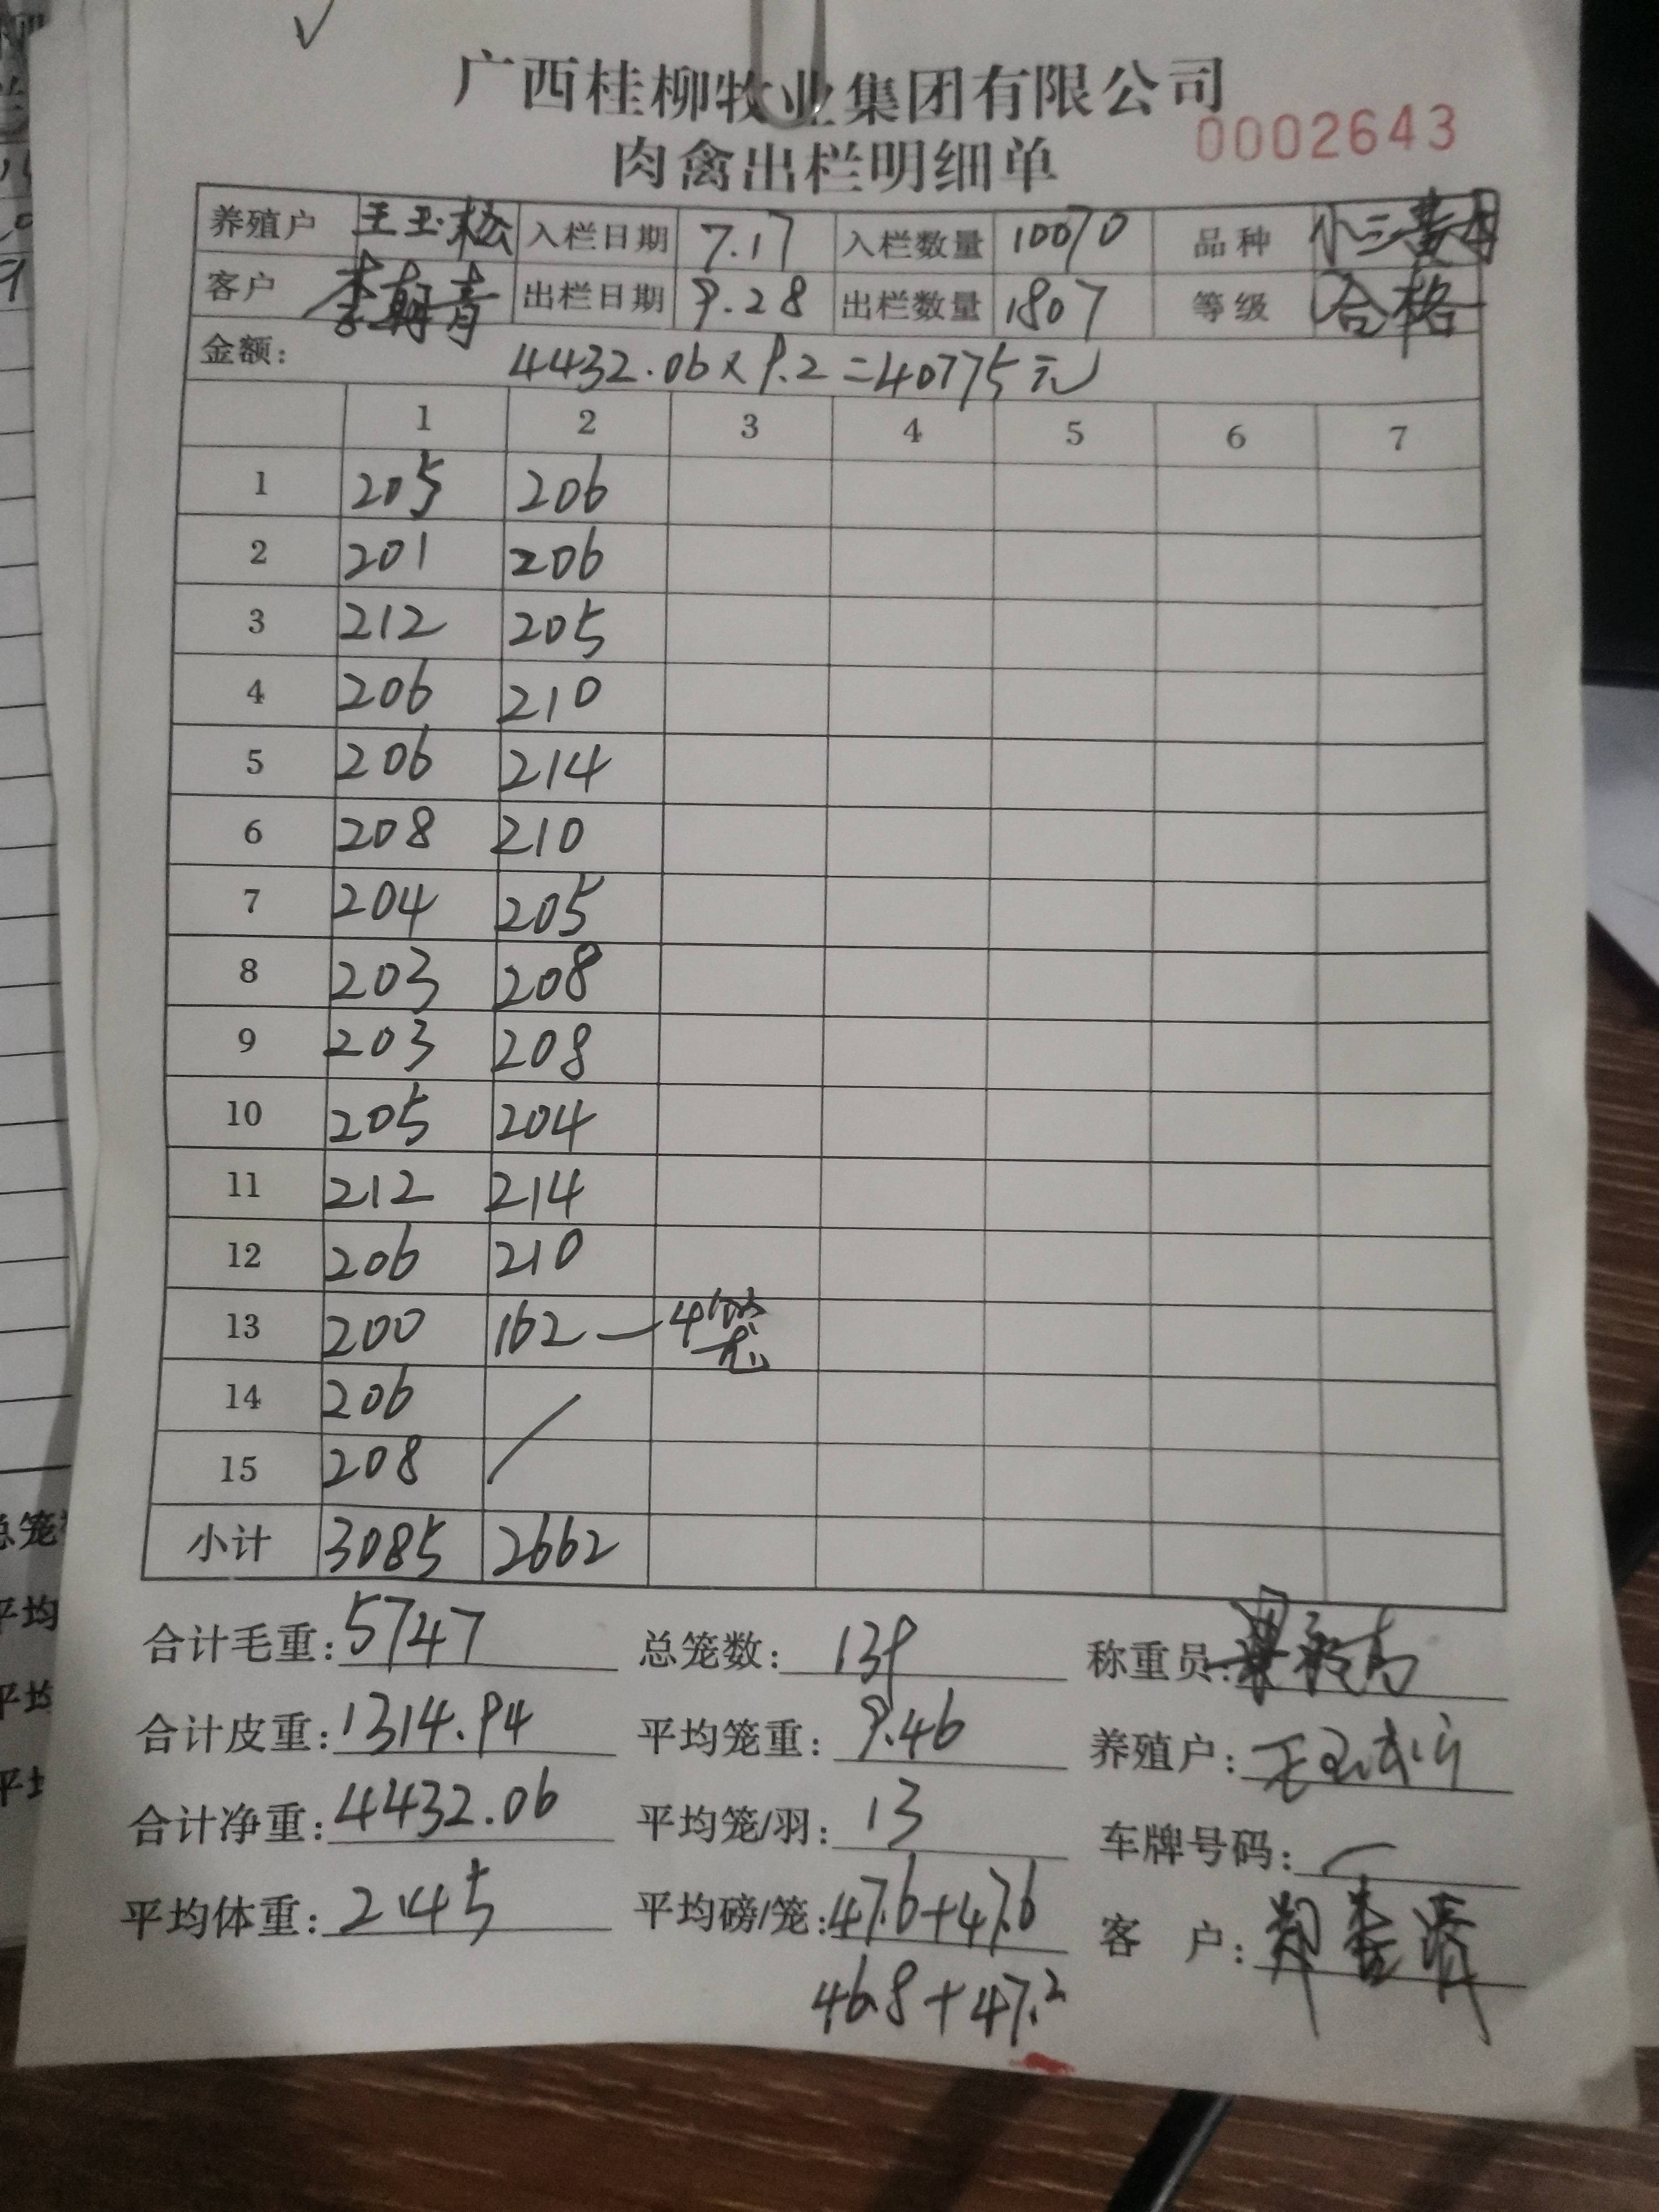 广西桂柳牧业集团有限公司
肉禽出栏明细单
0002643
养殖户 王玉松 入栏日期 7.17 入栏数量 10070 品种 小三黄母
客户 李朝青 出栏日期 9.28 出栏数量 1807 等级 合格
金额: 4432.06×9.2=40775元
1 2 3 4 5 6 7
1 205 206
2 201 206
3 212 205
4 206 210
5 206 214
6 208 210
7 204 205
8 203 208
9 203 208
10 205 204
11 212 214
12 206 210
13 200 162 — 4笼
14 206
15 208
小计 3085 2662
合计毛重: 5747 总笼数: 139 称重员:
合计皮重: 1314.94 平均笼重: 9.46 养殖户:
合计净重: 4432.06 平均笼/羽: 13 车牌号码: —
平均体重: 2.45 平均磅/笼: 47.6+47.6 客 户:
46.8+47.2
总笼
平均
平均
平均